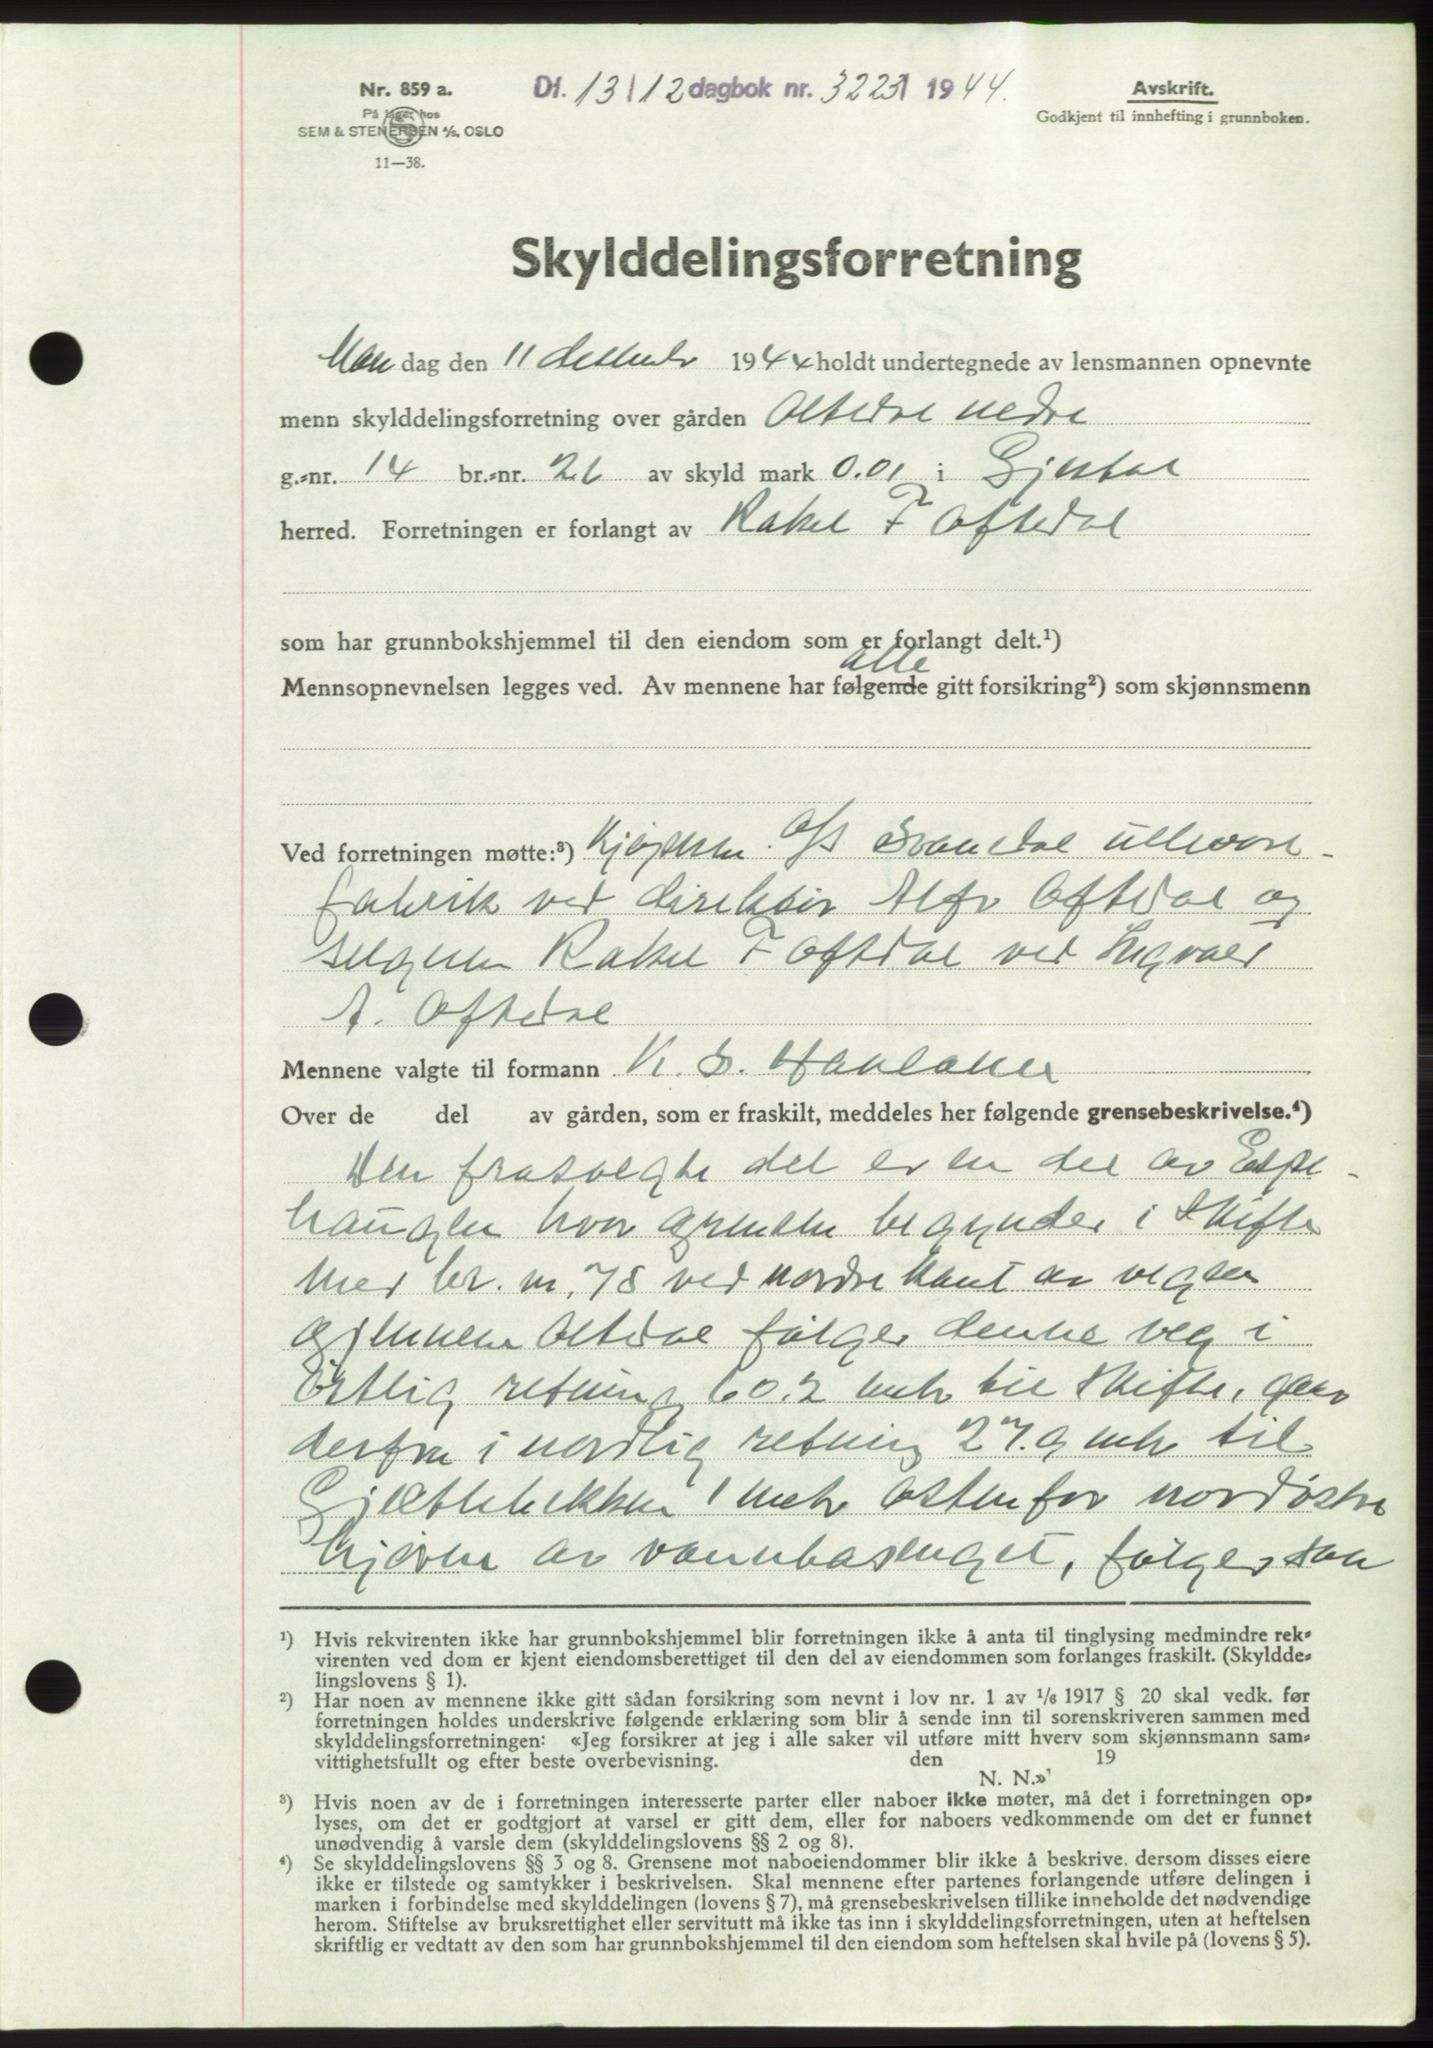 Nr. 859 a.
På lager hos
SEM & STENERSEN A/S, OSLO
11—38.
Df. 13/12 dagbok nr. 3223 1944.
Avskrift.
Godkjent til innhefting i grunnboken.
Skylddelingsforretning
Mandag den 11 desember 1944 holdt undertegnede av lensmannen opnevnte
menn skylddelingsforretning over gården Oltedal nedre
g.=nr. 14 br.=nr. 26 av skyld mark 0.01 i Gjestal
herred. Forretningen er forlangt av Rakel F Oftedal
som har grunnbokshjemmel til den eiendom som er forlangt delt.¹)
alle
Mennsopnevnelsen legges ved. Av mennene har følgende gitt forsikring²) som skjønnsmenn
Ved forretningen møtte:³) Kjøperen A/S Svandal ullvare-
fabrik ved direktør Alfr Oftedal og
selgeren Rakel F Oftedal ved Ingvald
A. Oftedal
Mennene valgte til formann K. S. Haulaker
Over de del av gården, som er fraskilt, meddeles her følgende grensebeskrivelse.⁴)
Den frasolgte del er en del av Espe-
haugen hvor grensen begynder i skifte
med br. nr. 78 ved nordre kant av vegen
gjennem Oltedal følger denne veg i
østlig retning 60.2 meter til skifte, gaar
derfra i nordlig retning 27.9 meter til
Gjettebekken 1 meter østenfor nordøstre
hjørne av vannbasenget, følger saa
¹) Hvis rekvirenten ikke har grunnbokshjemmel blir forretningen ikke å anta til tinglysing medmindre rek=
virenten ved dom er kjent eiendomsberettiget til den del av eiendommen som forlanges fraskilt. (Skyldde=
lingslovens § 1).
²) Har noen av mennene ikke gitt sådan forsikring som nevnt i lov nr. 1 av 1/6 1917 § 20 skal vedk. før
forretningen holdes underskrive følgende erklæring som blir å sende inn til sorenskriveren sammen med
skylddelingsforretningen: «Jeg forsikrer at jeg i alle saker vil utføre mitt hverv som skjønnsmann sam=
vittighetsfullt og efter beste overbevisning. den 19
N. N.»
³) Hvis noen av de i forretningen interesserte parter eller naboer ikke møter, må det i forretningen op=
lyses, om det er godtgjort at varsel er gitt dem, eller for naboers vedkommende om det er funnet
unødvendig å varsle dem (skylddelingslovens §§ 2 og 8).
⁴) Se skylddelingslovens §§ 3 og 8. Grensene mot naboeiendommer blir ikke å beskrive, dersom disses eiere
ikke er tilstede og samtykker i beskrivelsen. Skal mennene efter partenes forlangende utføre delingen i
marken i forbindelse med skylddelingen (lovens § 7), må grensebeskrivelsen tillike inneholde det nødvendige
herom. Stiftelse av bruksrettighet eller servitutt må ikke tas inn i skylddelingsforretningen, uten at heftelsen
skriftlig er vedtatt av den som har grunnbokshjemmel til den eiendom som heftelsen skal hvile på (lovens § 5).